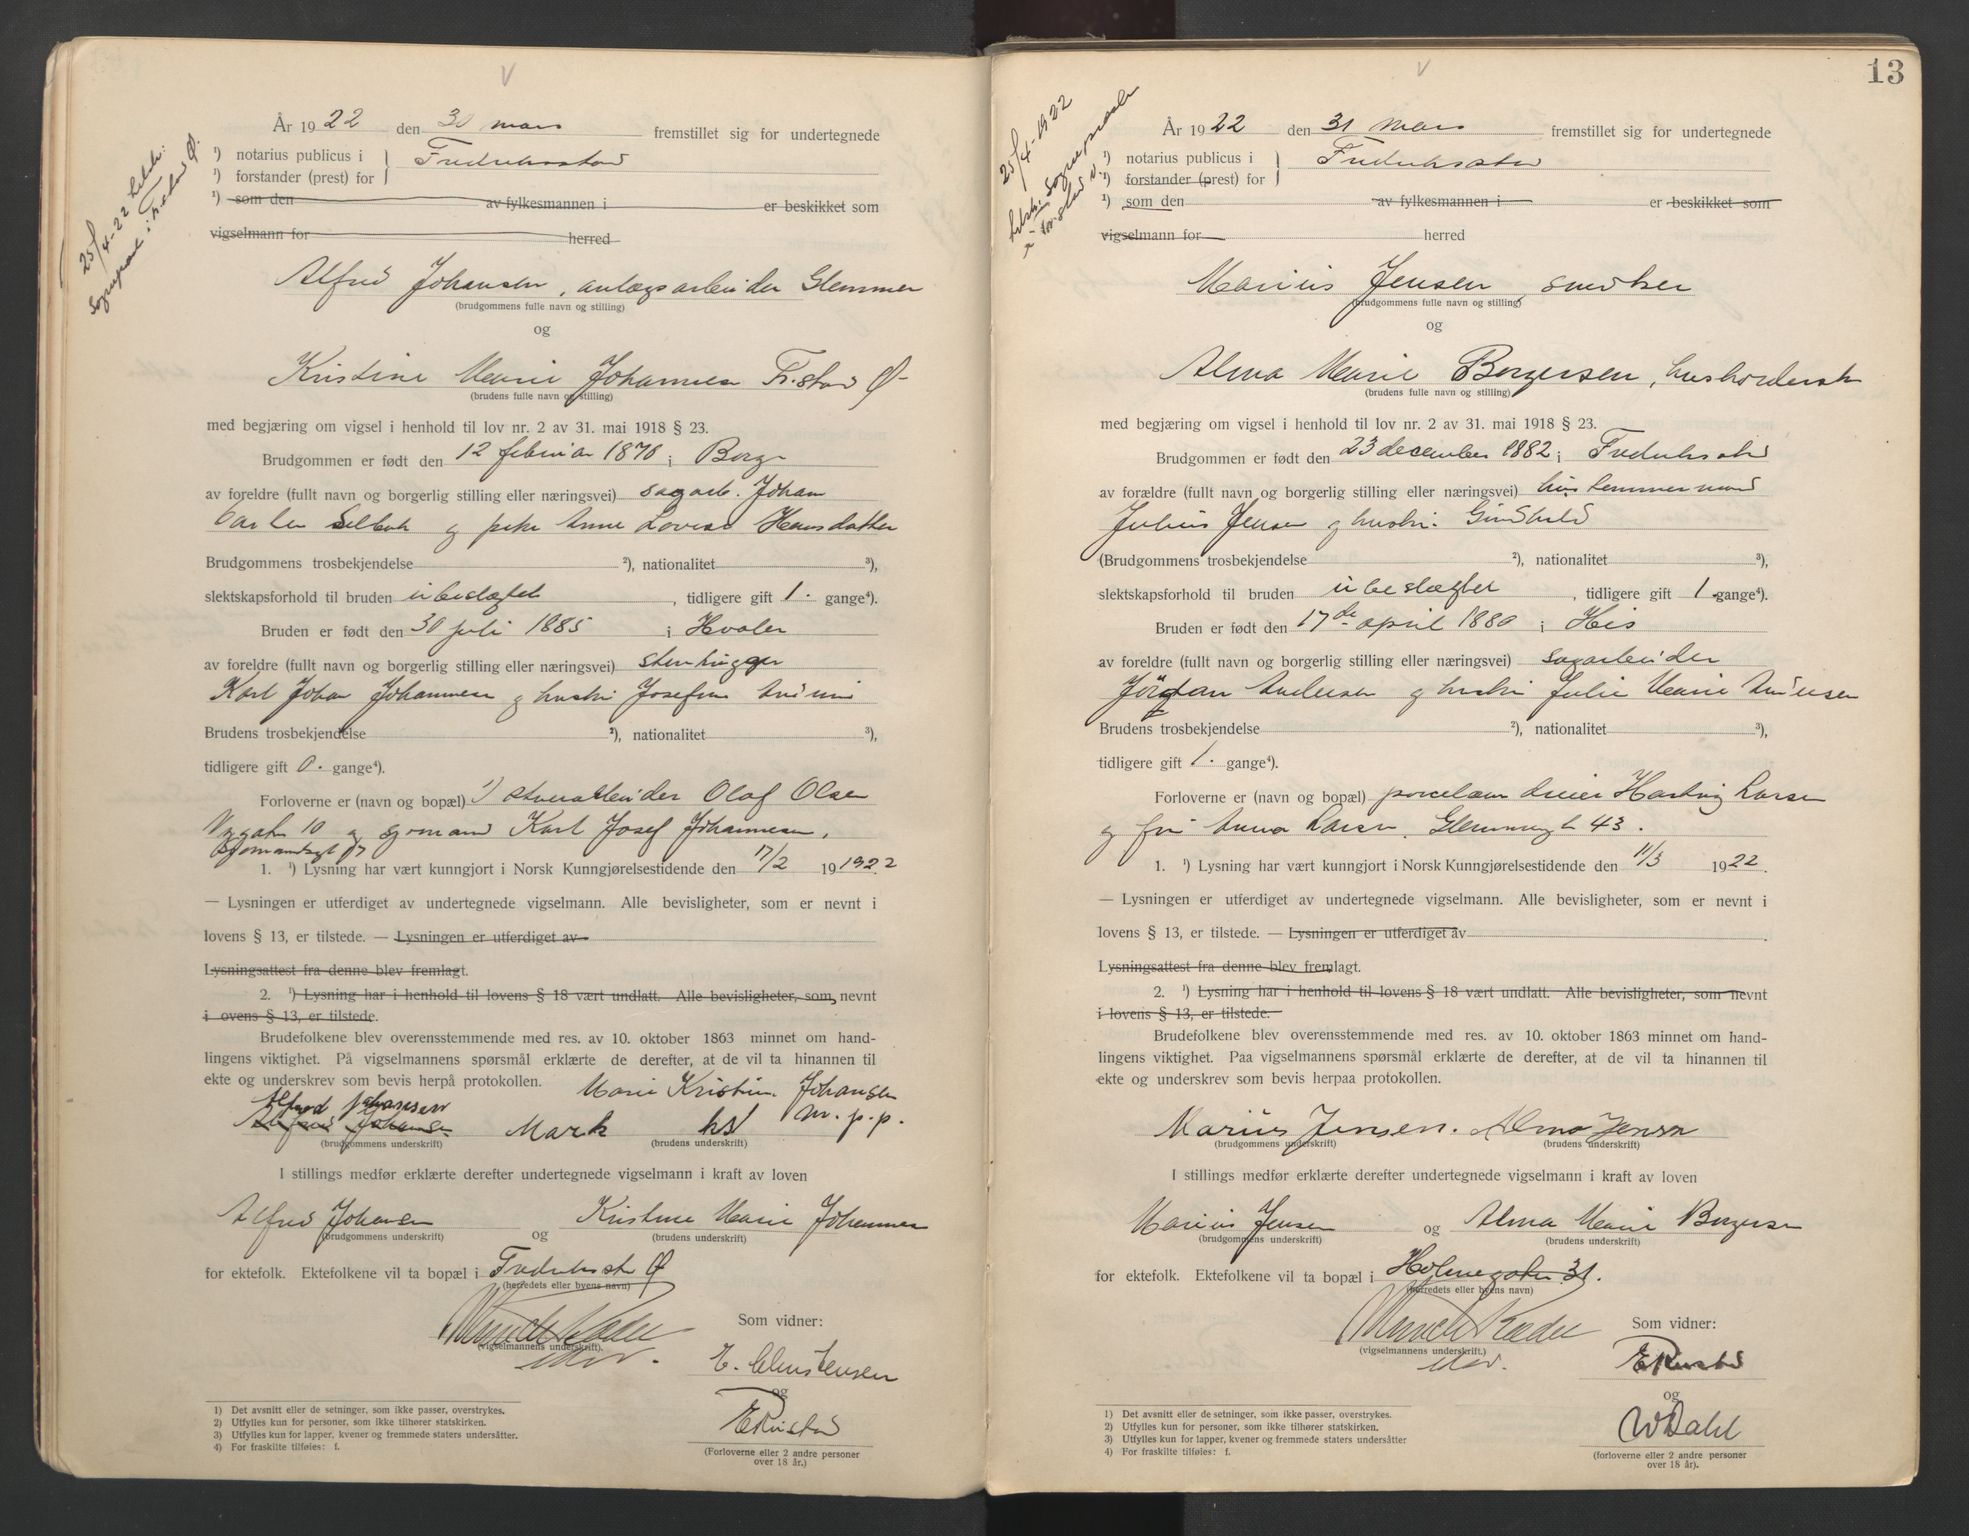 25/4-22
Sogneprest i F.stad Ø.
År 1922 den 30 mars fremstillet sig for undertegnede
¹) notarius publicus i } Fredriksstad
¹) forstander (prest) for
¹) som den av fylkesmannen i er beskikket som
vigselmann for herred
Alfred Johansen, anlægsarbeider Glemmen
(brudgommens fulle navn og stilling)
og
Kristine Marie Johannesen Fr.stad Ø-
(brudens fulle navn og stilling)
med begjæring om vigsel i henhold til lov nr. 2 av 31. mai 1918 § 23.
Brudgommen er født den 12 februar 1870 i Borge
av foreldre (fullt navn og borgerlig stilling eller næringsvei) sagarb. Johan
Carlsen Selbak og pike Anne Lovise Hansdatter
Brudgommens trosbekjendelse ²), nationalitet ³),
slektskapsforhold til bruden ubeslægtet, tidligere gift 1. gange⁴).
Bruden er født den 30 juli 1885 i Hvaler
av foreldre (fullt navn og borgerlig stilling eller næringsvei) stenhugger
Karl Johan Johannesen og hustru Josefine
Brudens trosbekjendelse ²), nationalitet ³),
tidligere gift 0. gange⁴).
Forloverne er (navn og bopæl) 1) Olaf Olsen
Nygatn 10 og sjømand Karl Josef Johannesen,
1. ¹) Lysning har vært kunngjort i Norsk Kunngjørelsestidende den 17/2 19 1922
— Lysningen er utferdiget av undertegnede vigselmann. Alle bevisligheter, som er nevnt i
lovens § 13, er tilstede. — Lysningen er utferdiget av
Lysningsattest fra denne blev fremlagt.
2. ¹) Lysning har i henhold til lovens § 18 vært undlatt. Alle bevisligheter, som nevnt
i ovens § 13, er tilstede.
Brudefolkene blev overensstemmende med res. av 10. oktober 1863 minnet om hand-
lingens viktighet. På vigselmannens spørsmål erklærte de derefter, at de vil ta hinannen til
ekte og underskrev som bevis herpå protokollen.
Marie Kristine Johansen
Alfred Johansen m. p. p.
Alfred Johansen
(brudgommens underskrift) (brudens underskrift)
I stillings medfør erklærte derefter undertegnede vigselmann i kraft av loven
Alfred Johansen og Kristine Marie Johannesen
(brudgommens underskrift) (brudens underskrift)
for ektefolk. Ektefolkene vil ta bopæl i Fredriksstad Ø
(herredets eller byens navn)
(vigselmannens underskrift).
Som vidner:
E. Christensen
og
(Forloverne eller 2 andre personer
over 18 år.)
1) Det avsnitt eller de setninger, som ikke passer, overstrykes.
2) Utfylles kun for personer, som ikke tilhører statskirken.
3) Utfylles kun for lapper, kvener og fremmede staters undersåtter.
4) For fraskilte tilføies: f.
13
25/4-1922
År 1922 den 31 mars fremstillet sig for undertegnede
¹) notarius publicus i } Fredriksstad
¹) forstander (prest) for
¹) som den av fylkesmannen i er beskikket som
vigselmann for herred
Marius Jensen, snedker
(brudgommens fulle navn og stilling)
og
Alma Marie Borgersen,
(brudens fulle navn og stilling)
med begjæring om vigsel i henhold til lov nr. 2 av 31. mai 1918 § 23.
Brudgommen er født den 23 december 1882 i Fredriksstad
av forældre (fullt navn og borgerlig stilling eller næringsvei) hustømmermand
Julius Jensen og hustru Gunhild
(Brudgommens trosbekjendelse ²), nationalitet ³),
slektskapsforhold til bruden ubeslægtet, tidligere gift 1. gange⁴).
Bruden er født den 17de april 1880 i His
av foreldre (fullt navn og borgerlig stilling eller næringsvei) sagarbeider
Jørgen Andersen og hustru Julie Marie Andersen
Brudens trosbekjendelse ²), nationalitet ³),
tidligere gift 1. gange⁴).
Forloverne er (navn og bopæl) porcelæn dreier Hartvig Larsen
og fru Anna Larsen, Glemmengt 43.
1. ¹) Lysning har vært kunngjort i Norsk Kunngjørelsestidende den 11/3 1922.
— Lysningen er utferdiget av undertegnede vigselmann. Alle bevisligheter, som er nevnt i
lovens § 13, er tilstede. — Lysningen er utferdiget av
Lysningsattest fra denne blev fremlagt.
2. ¹) Lysning har i henhold til lovens § 18 vært undlatt. Alle bevisligheter, som nevnt
i lovens § 13, er tilstede.
Brudefolkene blev overensstemmende med res. av 10. oktober 1863 minnet om hand-
lingens viktighet. Paa vigselmannens spørsmål erklærte de derefter, at de vil ta hinannen til
ekte og underskrev som bevis herpaa protokollen.
Marius Jensen. Alma Jensen
(brudgommens underskrift) (brudens underskrift)
I stillings medfør erklærte derefter undertegnede vigselmann i kraft av loven
Marius Jensen og Alma Marie Borgersen
(brudgommens underskrift) (brudens underskrift)
for ektefolk. Ektefolkene vil ta bopæl i Holmegaten 31.
(herredets eller byens navn)
(vigselmannens underskrift.)
Som vidner:
og
W Dahl
(forloverne eller 2 andre personer
over 18 år).
1) Det avsnitt eller de setninger, som ikke passer, overstrykes.
2) Utfylles kun for personer, som ikke tilhører statskirken.
3) Utfylles kun for lapper, kvener og fremmede staters undersåtter
4) For fraskilte tilføies: f.